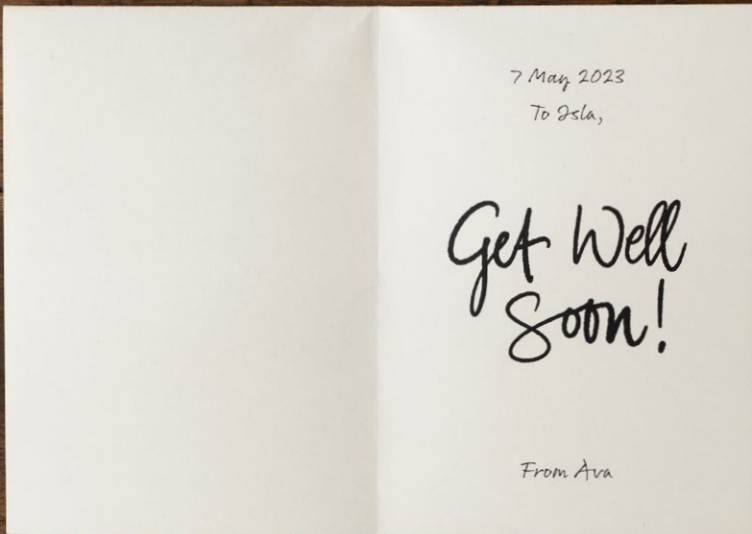 7 May 2023
To Isla,
Get Well
Soon!
From Ava